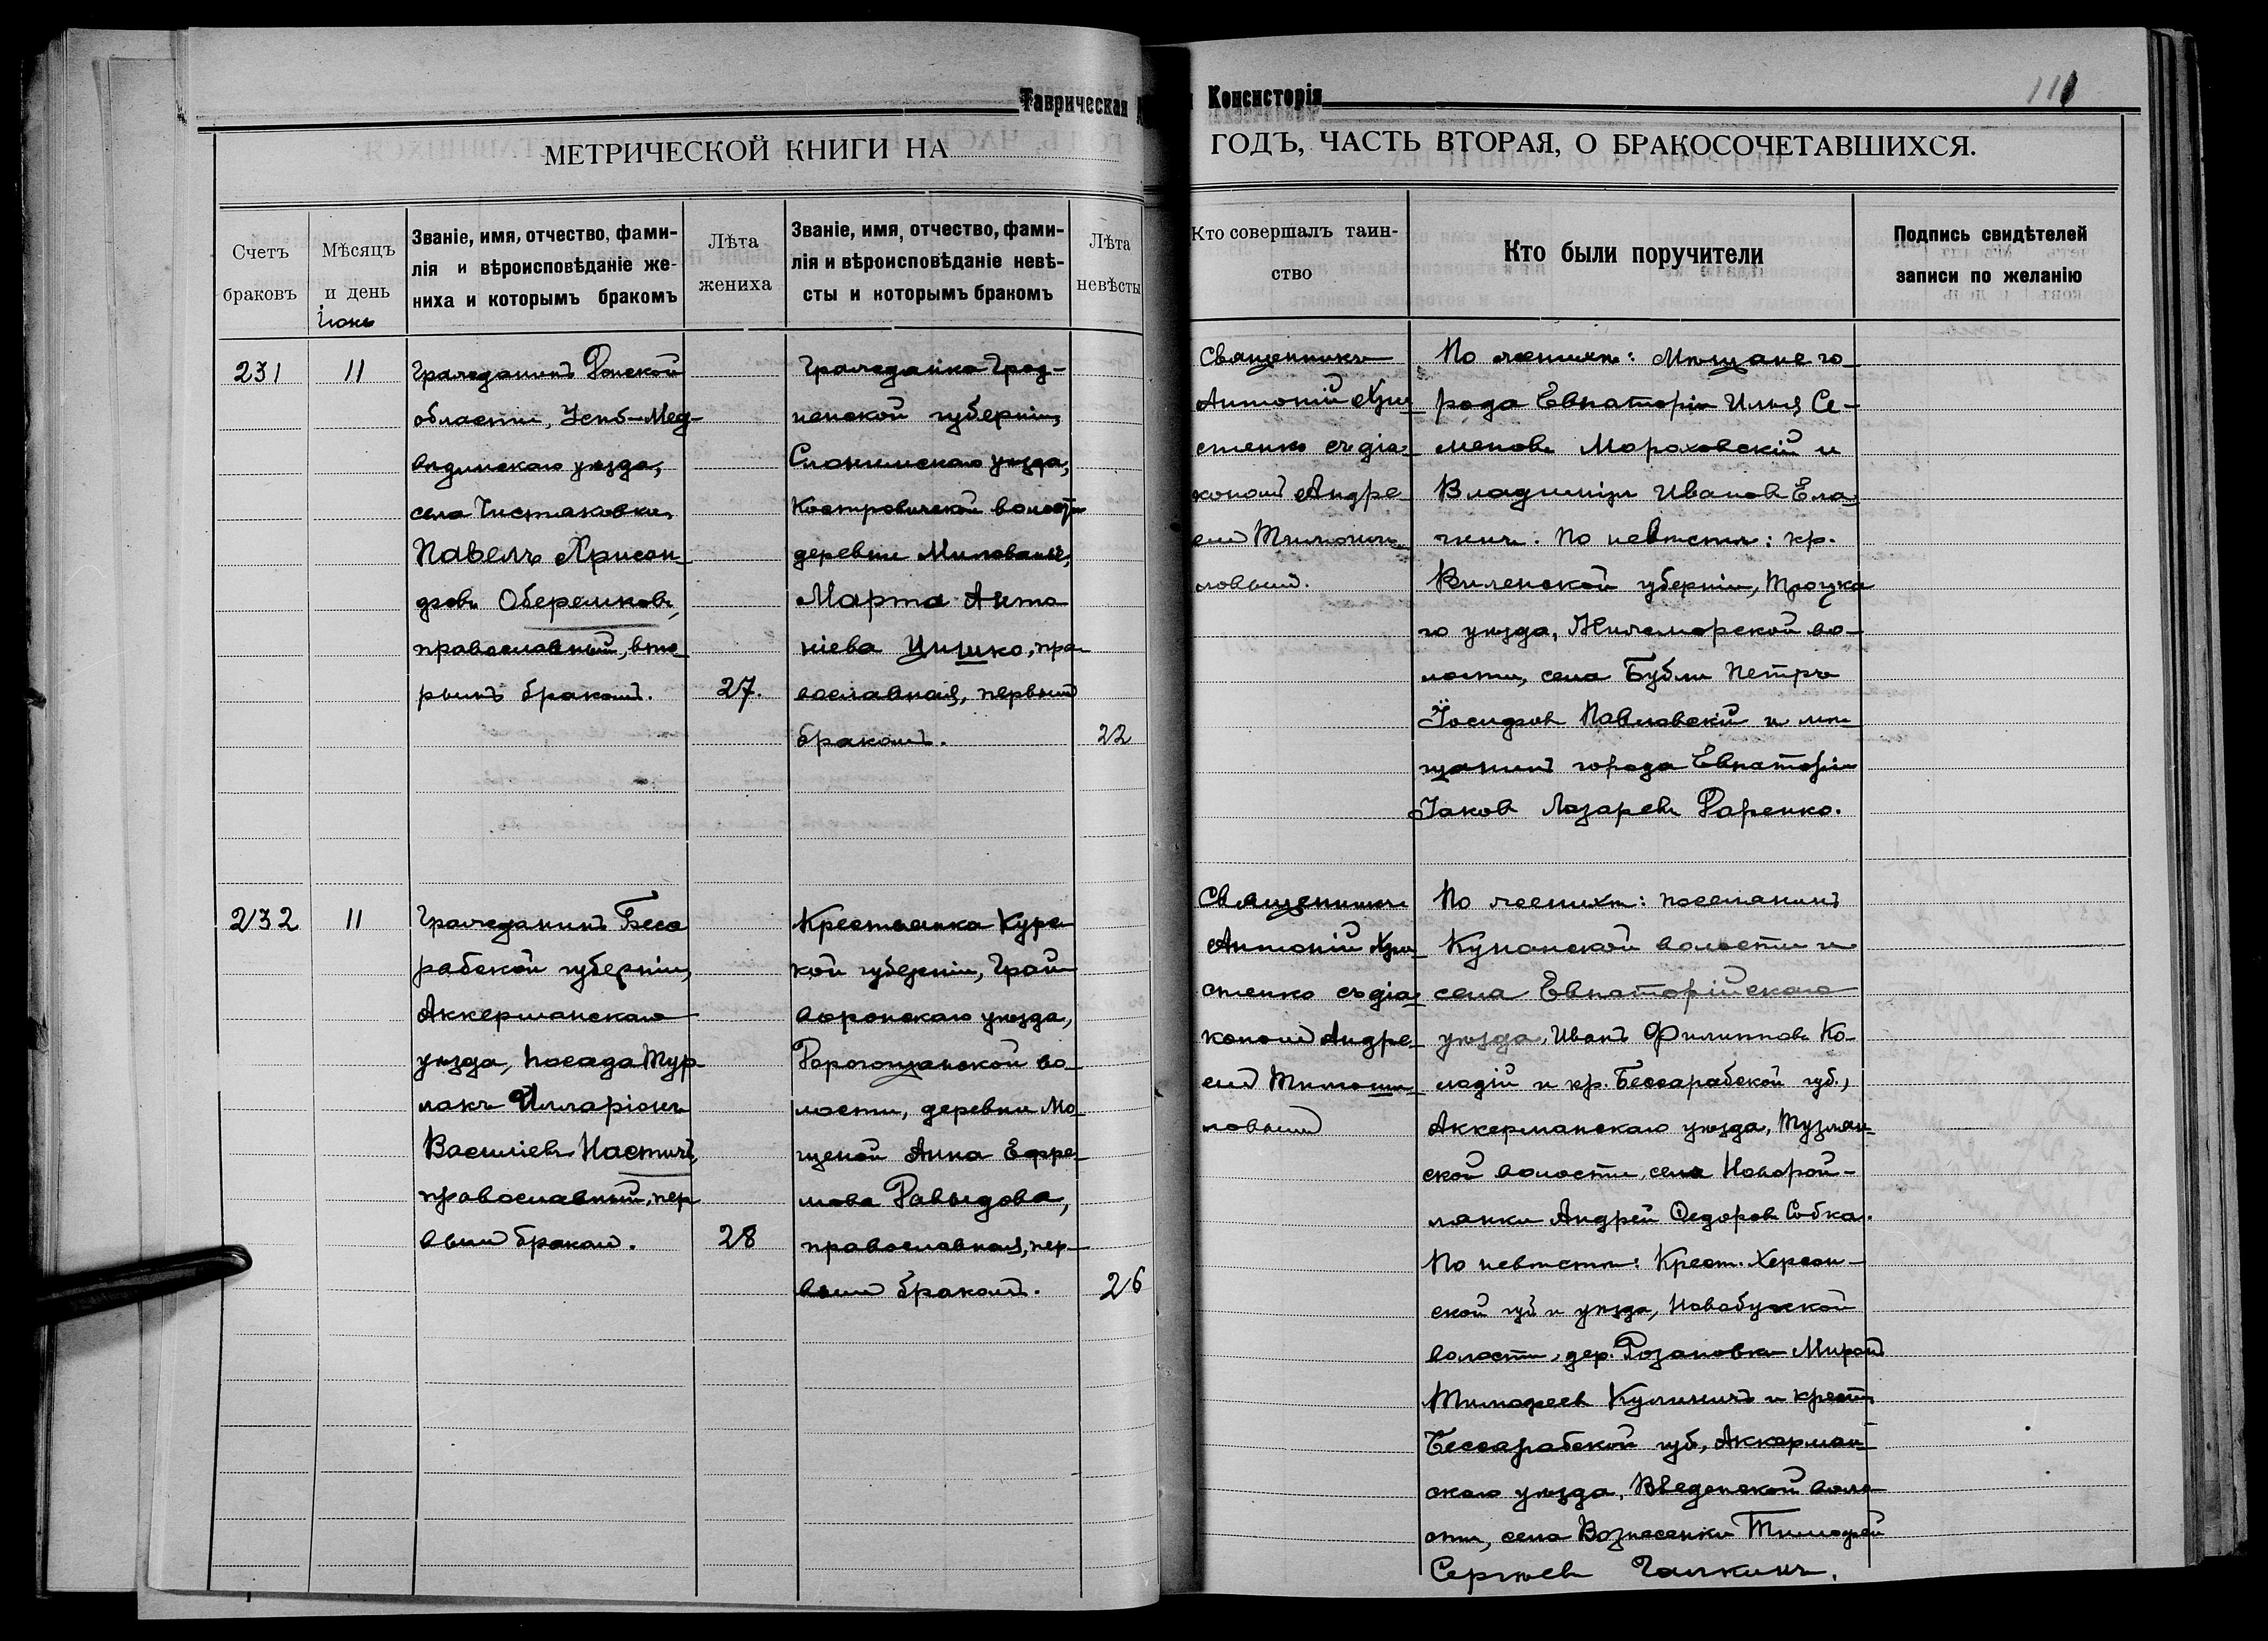 Таврическая
Консисторія
111
МЕТРИЧЕСКОЙ КНИГИ НА
ГОДЪ, ЧАСТЬ ВТОРАЯ, О БРАКОСОЧЕТАВШИХСЯ.
Счетъ браковъ
Мѣсяцъ и день
Званіе, имя, отчество, фами-
лія и вѣроисповѣданіе же-
ниха и которымъ бракомъ
Лѣта жениха
Званіе, имя, отчество, фами-
лія и вѣроисповѣданіе невѣ-
сты и которымъ бракомъ
Лѣта невѣсты
Кто совершалъ таин-
ство
Кто были поручители
Подпись свидѣтелей
записи по желанію
Іюнь
231
11
Гражданинъ Донской
области, Усть-Мед-
вѣдинскаго уѣзда,
села Чистяковки,
Павелъ Хрисан-
фовъ Оберемковъ,
православный, вто-
рымъ бракомъ.
27.
Гражданка Грод-
ненской губерніи,
Слонимскаго уѣзда,
Костровичской волости
деревни
Марта Анто
ніева Цишко, пра-
вославная, первымъ
бракомъ.
22
Священникъ
Антоній Хри
стенко съ діа-
кономъ Андре-
емъ
ловымъ.
По женихѣ: Мѣщане го-
рода Евпаторіи Илья Се-
меновъ Мороховскій и
Владиміръ Ивановъ Ела-
гинъ. По невѣстѣ: кр.
Виленской губерніи, Троцка
го уѣзда, Жижморской во-
лости, села Бубли Петръ
Іосифовъ Павловскій и мѣ-
щанинъ города Евпаторіи
Іаковъ Лазаревъ Даренко.
232
11
Гражданинъ Бесса
рабской губерніи,
Аккерманскаго
уѣзда, посада Тур-
лакъ Илларіонъ
Василіевъ Настичъ,
православный, пер
вымъ бракомъ.
28
Крестьянка Курс
кой губерніи, Грай
воронскаго уѣзда,
Дорогощанской во-
лости, деревни Мо-
щеной Анна Ефре-
мова Давыдова,
православная, пер-
вымъ бракомъ.
26
Священникъ
Антоній Хри
стенко съ діа-
кономъ Андре-
емъ
ловымъ
По женихѣ: поселянинъ
Кунанской волости и
села Евпаторійскаго
уѣзда, Иванъ Филипповъ Ко-
лодій и кр. Бессарабской губ.,
Аккерманскаго уѣзда, Тузлин-
ской волости, села
Андрей Федоровъ Собка.
По невѣстѣ: Крест. Херсон-
ской губ и уѣзда, Новобугской
волости, дер. Розановки Миронъ
Тимофеевъ Кулиничъ и крест.
Бессарабской губ., Аккерман-
скаго уѣзда, Введенской воло-
сти, села Вознесенки Тимофей
Сергѣевъ Галкинъ.